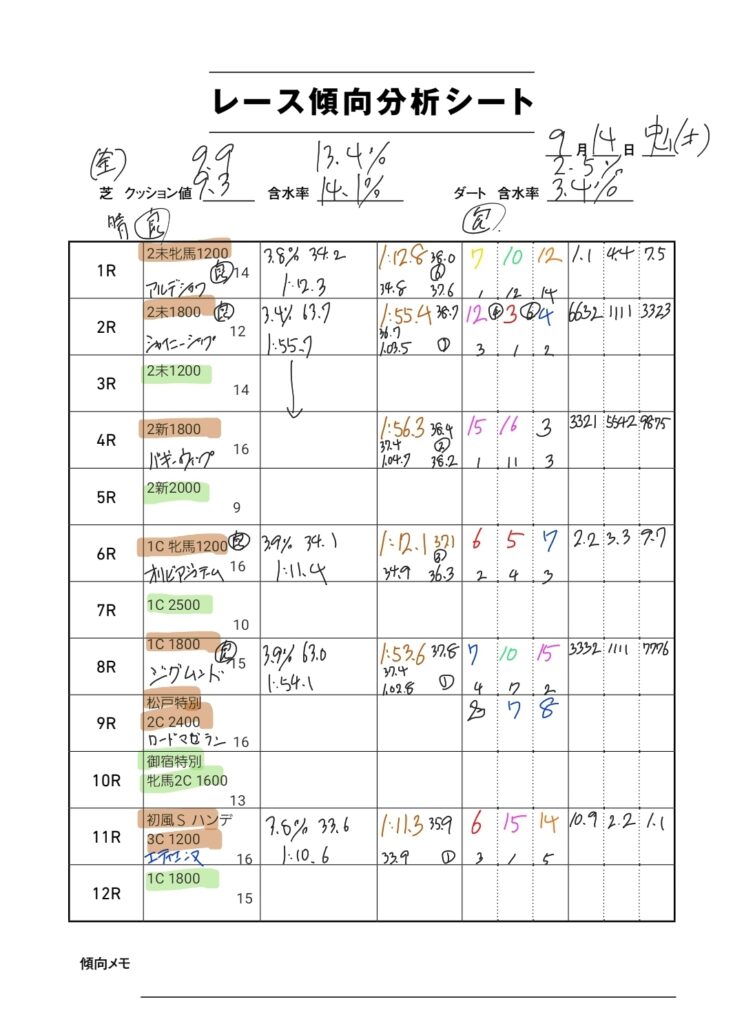 レース傾向分析シート
(金) 9.9 13.4% 9月14日 中山(土)
2.5%
芝 クッション値 9.3 含水率 14.1% ダート 含水率 3.4%
晴 良 良
2未牝馬1200 3.8% 34.2 1:12.8 38.0 7 10 12 1.1 4.4 7.5
1R 良 14 1:12.3 ⑥
34.8 37.6 1 12 14
2未1800 良 3.4% 63.7 1:55.4 38.7 12 ④ 3 ⑥ 4 6632 1111 3323
2R 12 36.7
シャイニージップ 1:55.7 1.03.5 ① 3 1 2
2未1200
3R 14
2新1800 1:56.3 38.4 15 16 3 3321 5542 9875
4R 16 37.4 ②
1.04.7 38.2 1 11 3
2新2000
5R 9
1C 牝馬1200 良 3.9% 34.1 1:12.1 37.1 6 5 7 2.2 3.3 9.7
6R 16 1:11.4
34.9 36.3 2 4 3
1C 2500
7R 10
1C 1800 良 3.9% 63.0 1:53.6 37.8 7 10 15 3332 1111 7776
8R 15 37.4
ジグムンド 1:54.1 1.02.8 ① 4 7 2
松戸特別 7 8
9R 2C 2400
ロードマゼラン 16
御宿特別
10R 牝馬2C 1600
13
初風S ハンデ 3.8% 33.6 1:11.3 35.9 6 15 14 10.9 2.2 1.1
11R 3C 1200 1:10.6
エティエンヌ 16 33.9 ① 3 1 5
1C 1800
12R 15
傾向メモ